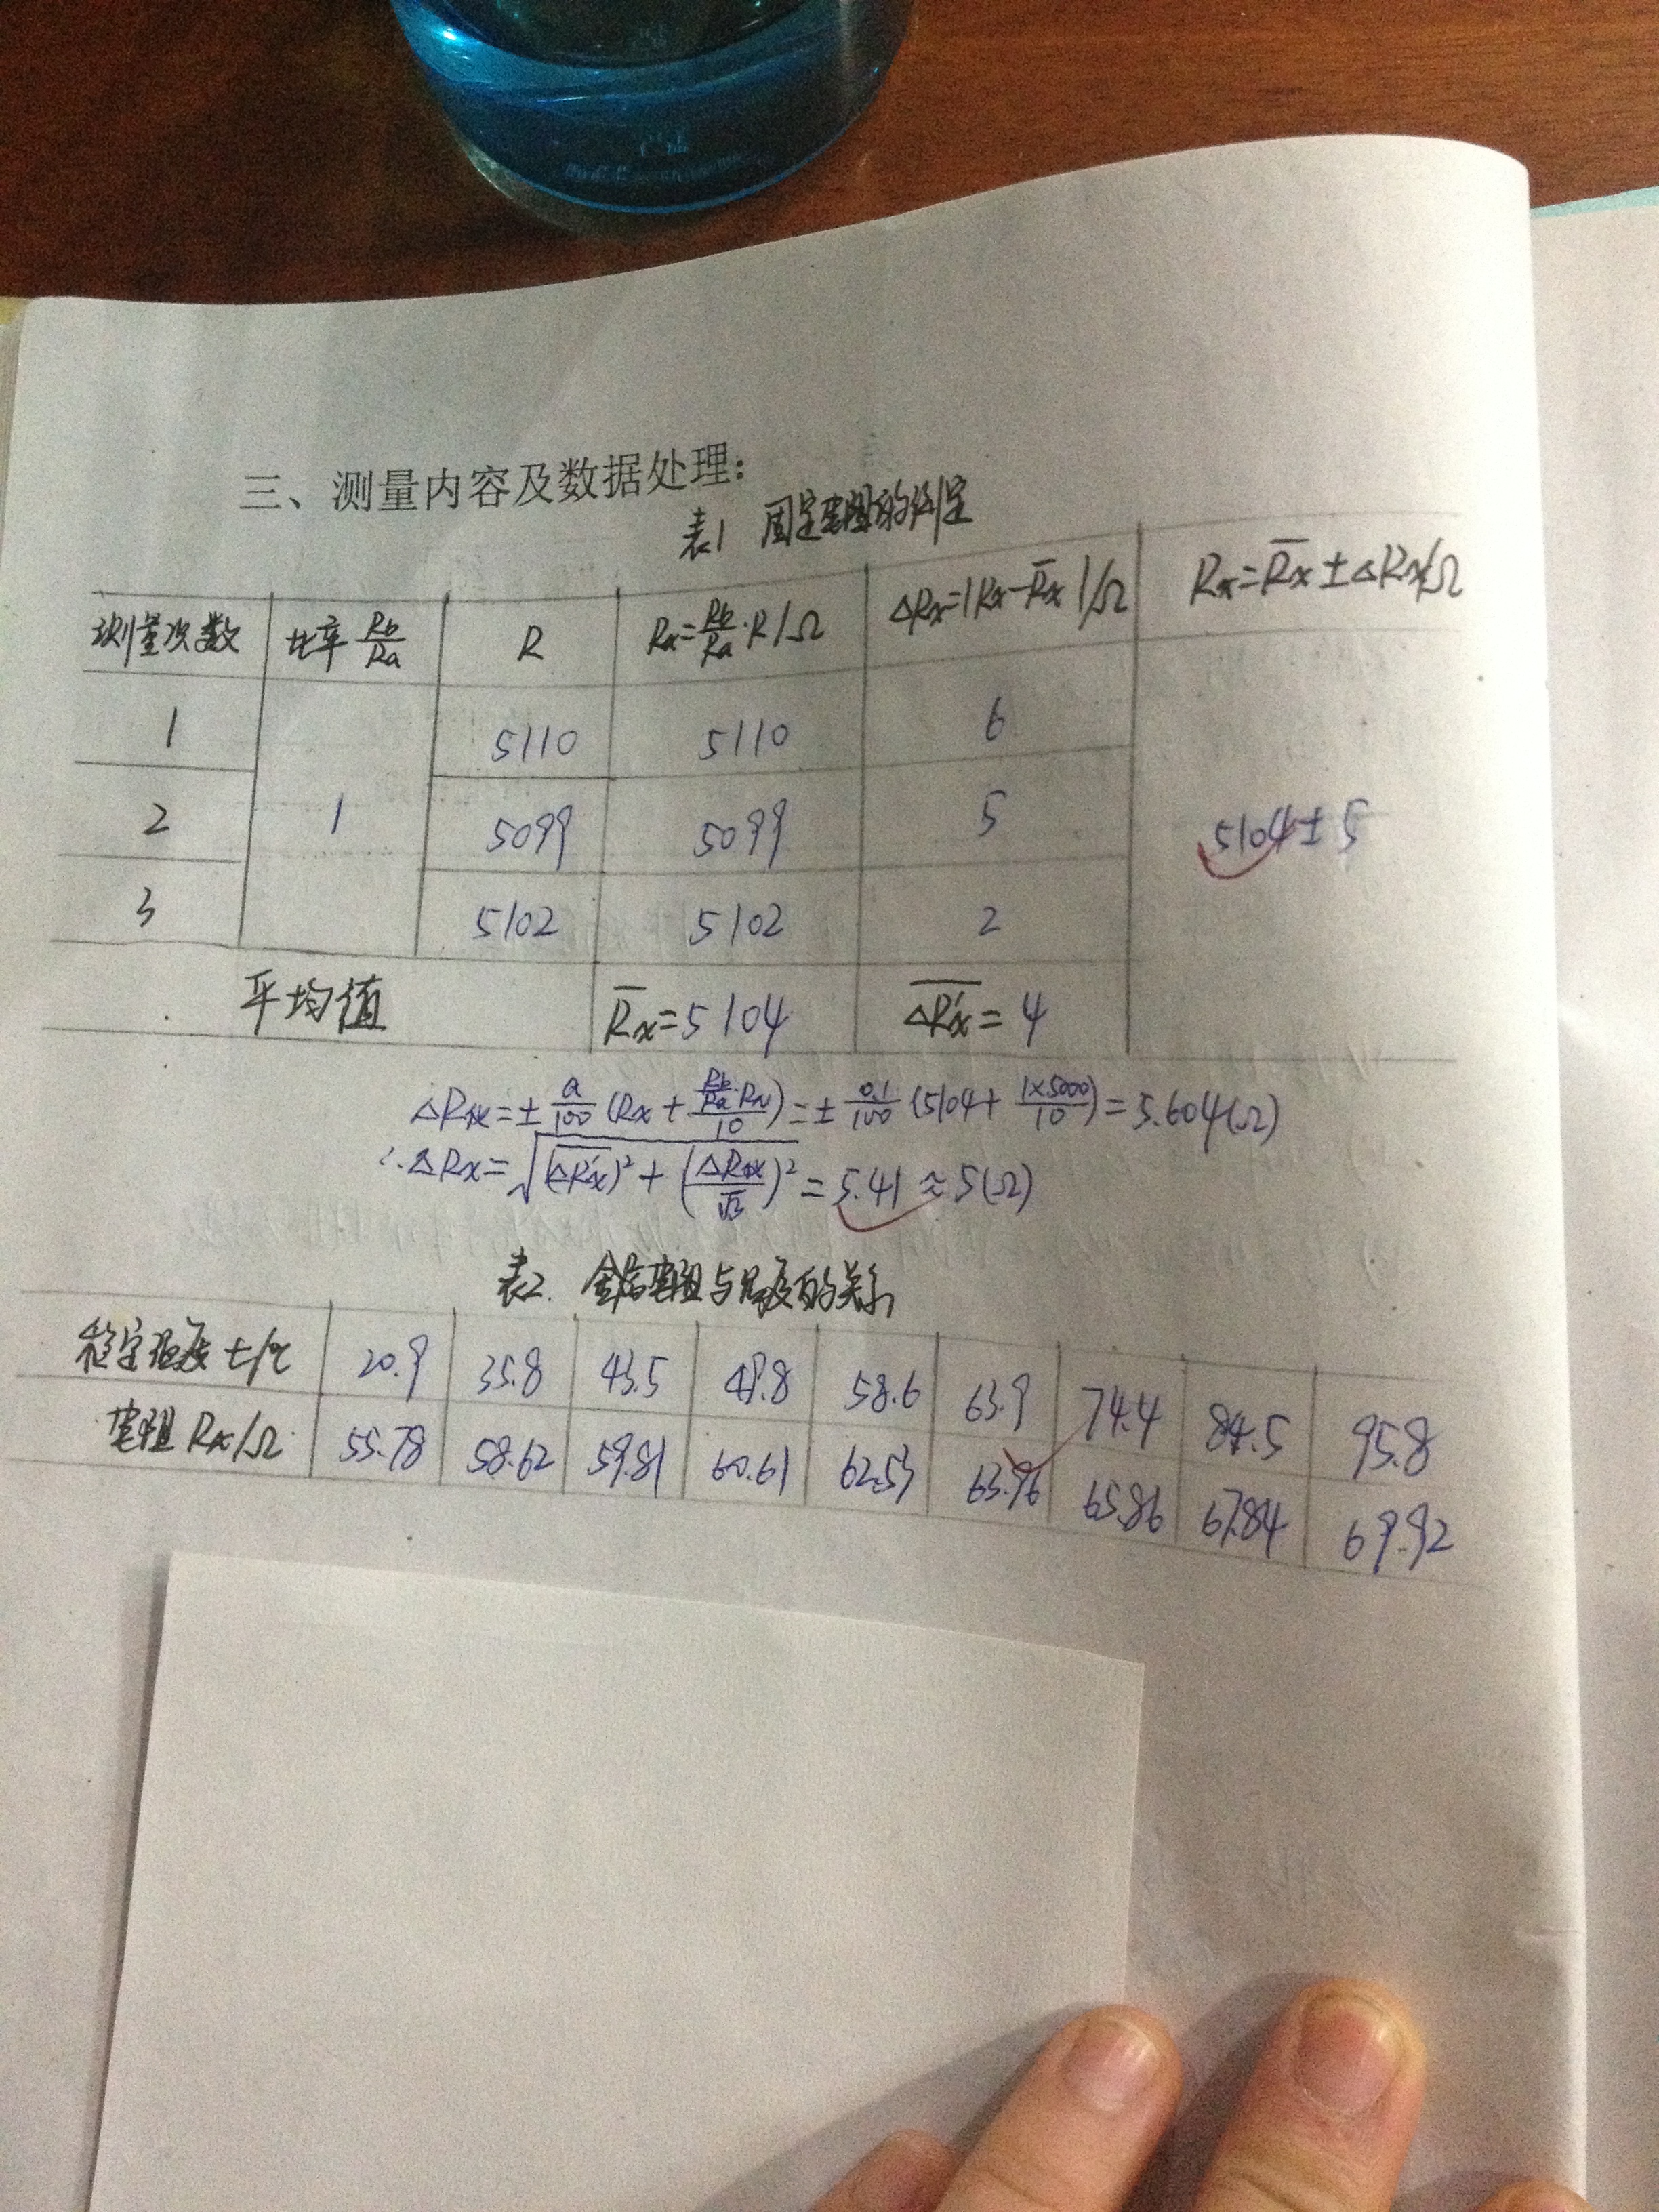 三、测量内容及数据处理:
表1 固定电阻的测定
测量次数 比率 Rb/Ra R Rx=Rb/Ra·R/Ω ΔRx=|Rx-R̅x|/Ω Rx=R̅x±ΔRx/Ω
1 5110 5110 6
2 1 5099 5099 5 5104±5
3 5102 5102 2
平均值 R̅x=5104 ΔR'x=4
ΔR仪=± a/100 (Rx + (Rb/Ra·RN)/10) = ± 0.1/100 (5104 + (1×5000)/10) = 5.604(Ω)
∴ΔRx=√((ΔR'x)² + (ΔR仪/√3)²) = 5.41 ≈ 5(Ω)
表2. 金属电阻与温度的关系
稳定温度 t/℃ 20.9 35.8 43.5 49.8 58.6 63.9 74.4 84.5 95.8
电阻 Rx/Ω 55.78 58.62 59.81 60.61 62.53 63.96 65.86 67.84 69.92